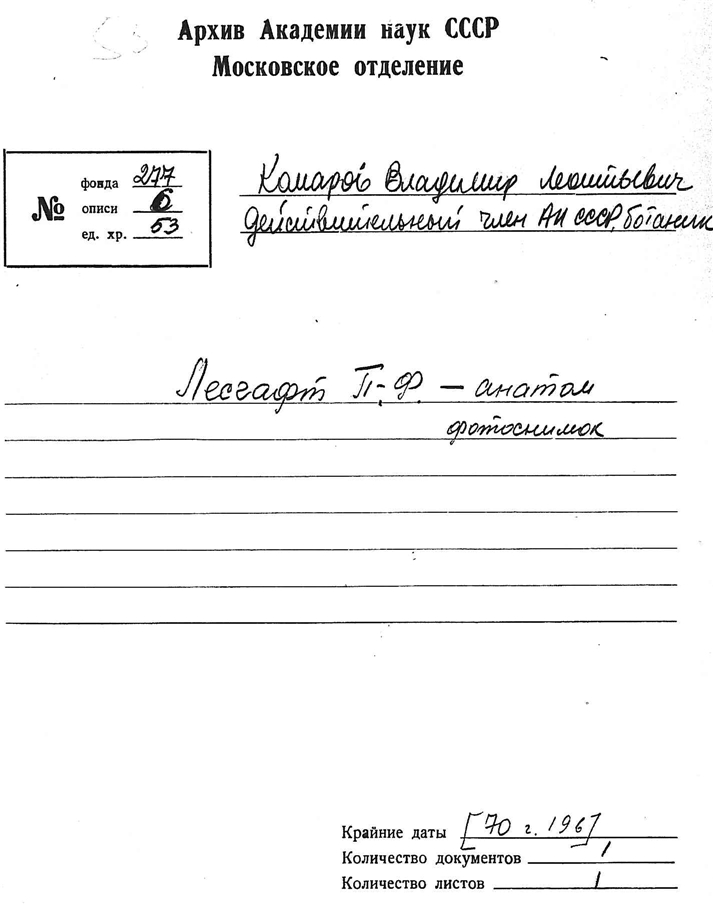 53
Архив Академии наук СССР
Московское отделение
№
фонда 277
описи 6
ед. хр. 53
Комаров Владимир Леонтьевич
действительный член АН СССР, ботаник
Лесгафт П.Ф. — анатом
фотоснимок
Крайние даты [70 г. 19б]
Количество документов 1
Количество листов 1